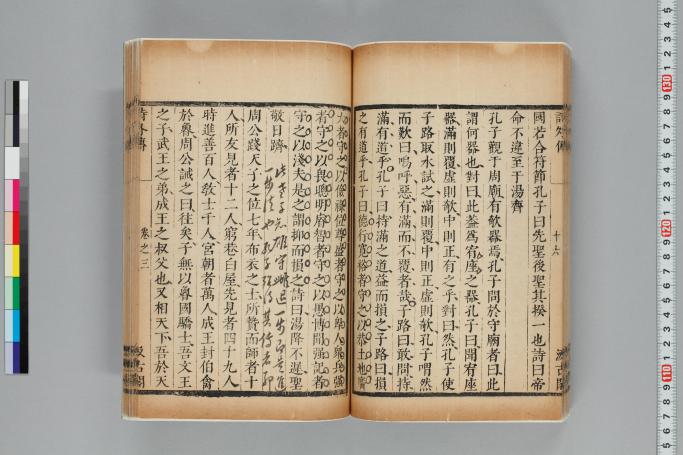 詩外傳
十六
國若合符節孔子曰先聖後聖其揆一也詩曰帝
命不違至于湯齊
孔子觀于周廟有欹器焉孔子問於守廟者曰此
謂何器也對曰此蓋爲宥座之器孔子曰聞宥座
器滿則覆虛則欹中則正有之乎對曰然孔子使
子路取水試之滿則覆中則正虛則欹孔子喟然
而歎曰嗚呼惡有滿而不覆者哉子路曰敢問持
滿有道乎孔子曰持滿之道益而損之子路曰損
之有道乎孔子曰德行寬裕者守之以恭土地廣
大者守之以儉祿位尊盛者守之以卑人衆兵強
者守之以畏聰明睿智者守之以愚博聞強記者
守之以淺夫是之謂抑而損之詩曰湯降不遲聖
敬日躋
周公踐天子之位七年布衣之士所贄而師者十
人所友見者十二人窮巷白屋先見者四十九人
時進善百人敎士千人宮朝者萬人成王封伯禽
於魯周公誡之曰往矣子無以魯國驕士吾文王
之子武王之弟成王之叔父也又相天下吾於天
詩外傳
卷之三
汲古閣